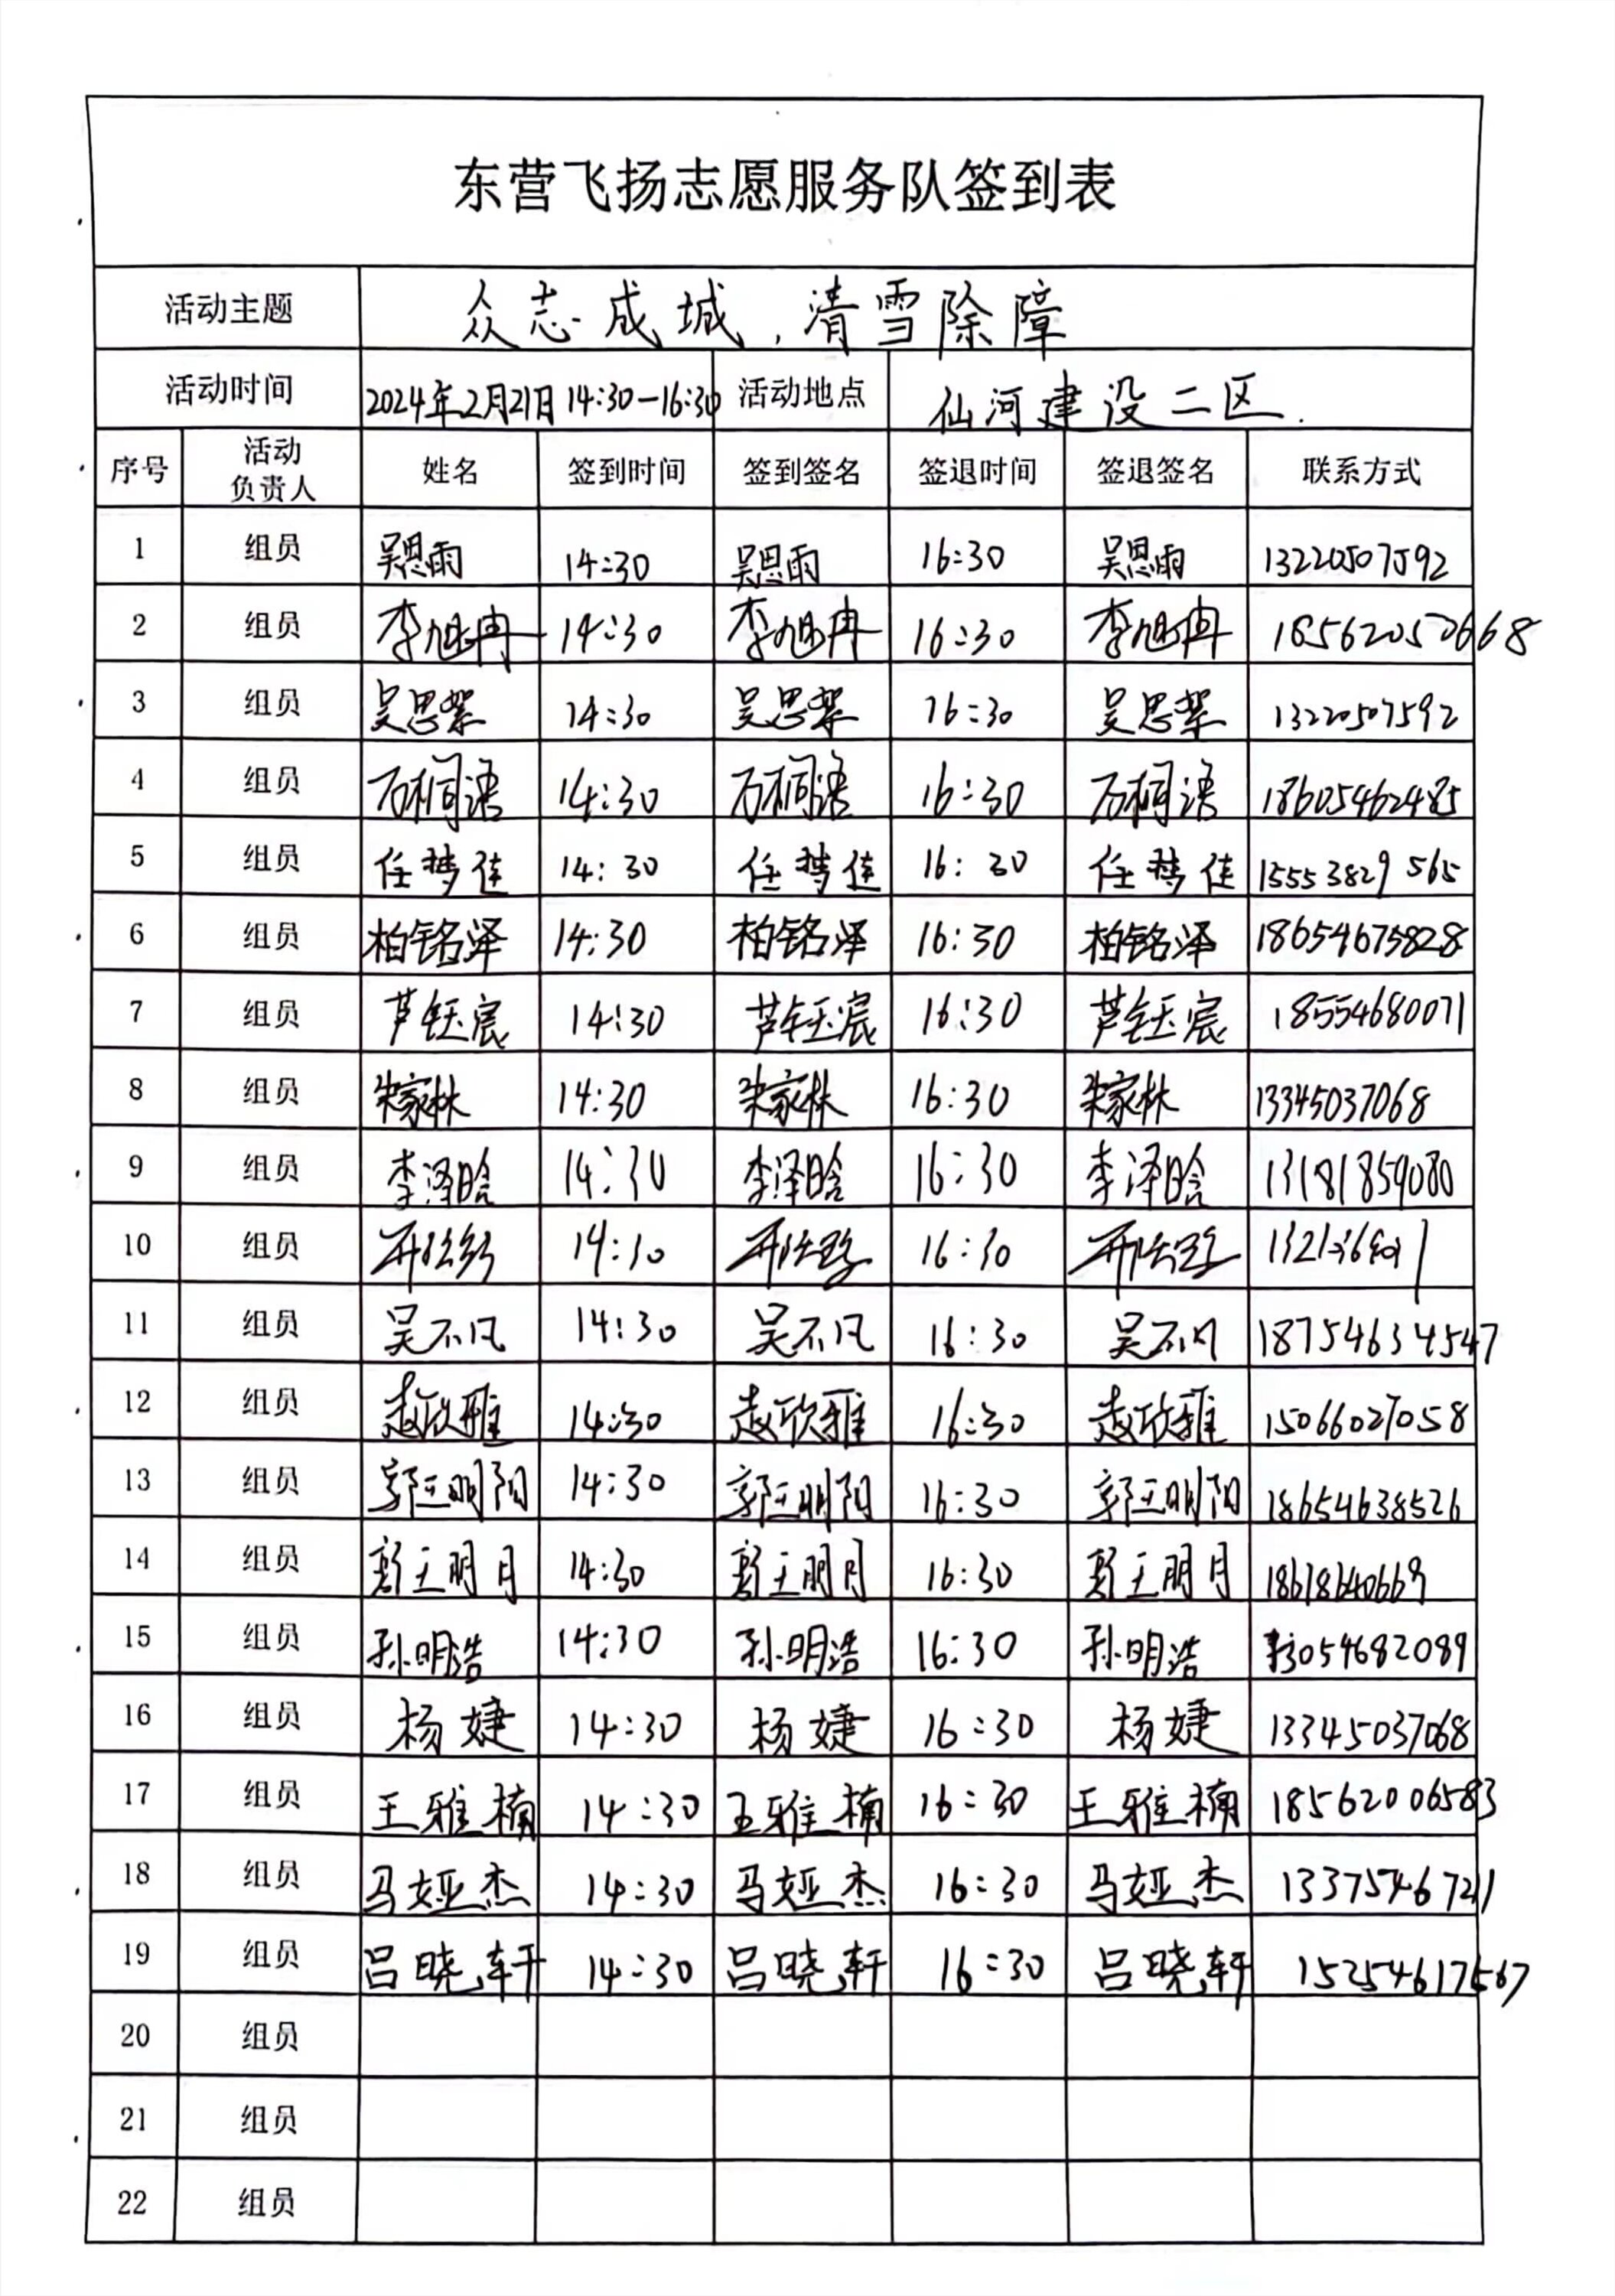 东营飞扬志愿服务队签到表
活动主题 众志成城,清雪除障
活动时间 2024年2月21日 14:30-16:30 活动地点 仙河建设二区.
序号 活动负责人 姓名 签到时间 签到签名 签退时间 签退签名 联系方式
1 组员 吴思雨 14:30 吴思雨 16:30 吴思雨 13220507592
2 组员 李旭冉 14:30 李旭冉 16:30 李旭冉
3 组员 吴思絮 14:30 吴思絮 16:30 吴思絮 13220507592
4 组员 石桐语 14:30 石桐语 16:30 石桐语 18605462485
5 组员 任梦佳 14:30 任梦佳 16:30 任梦佳 15553829565
6 组员 柏铭泽 14:30 柏铭泽 16:30 柏铭泽 18654675828
7 组员 芦钰宸 14:30 芦钰宸 16:30 芦钰宸 18554680071
8 组员 朱家林 14:30 朱家林 16:30 朱家林 13345037068
9 组员 李泽晗 14:30 李泽晗 16:30 李泽晗 13181859080
10 组员 14:30 16:30
11 组员 吴不凡 14:30 吴不凡 16:30 吴不凡 18754634547
12 组员 赵欣雅 14:30 赵欣雅 16:30 赵欣雅 15066027058
13 组员 郭王明阳 14:30 郭王明阳 16:30 郭王明阳 18654638526
14 组员 郭王明月 14:30 郭王明月 16:30 郭王明月 18618640669
15 组员 孙明浩 14:30 孙明浩 16:30 孙明浩
16 组员 杨婕 14:30 杨婕 16:30 杨婕 13345037068
17 组员 王雅楠 14:30 王雅楠 16:30 王雅楠 18562006583
18 组员 马娅杰 14:30 马娅杰 16:30 马娅杰 13375467211
19 组员 吕晓轩 14:30 吕晓轩 16:30 吕晓轩 15254617567
20 组员
21 组员
22 组员